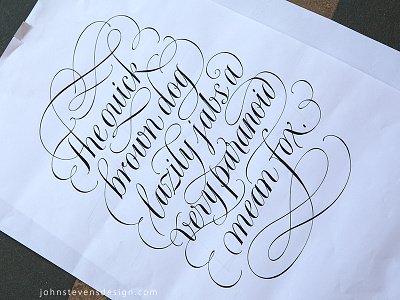 The quick
brown dog
lazily jabs a
very paranoid
mean fox.
johnstevensdesign.com